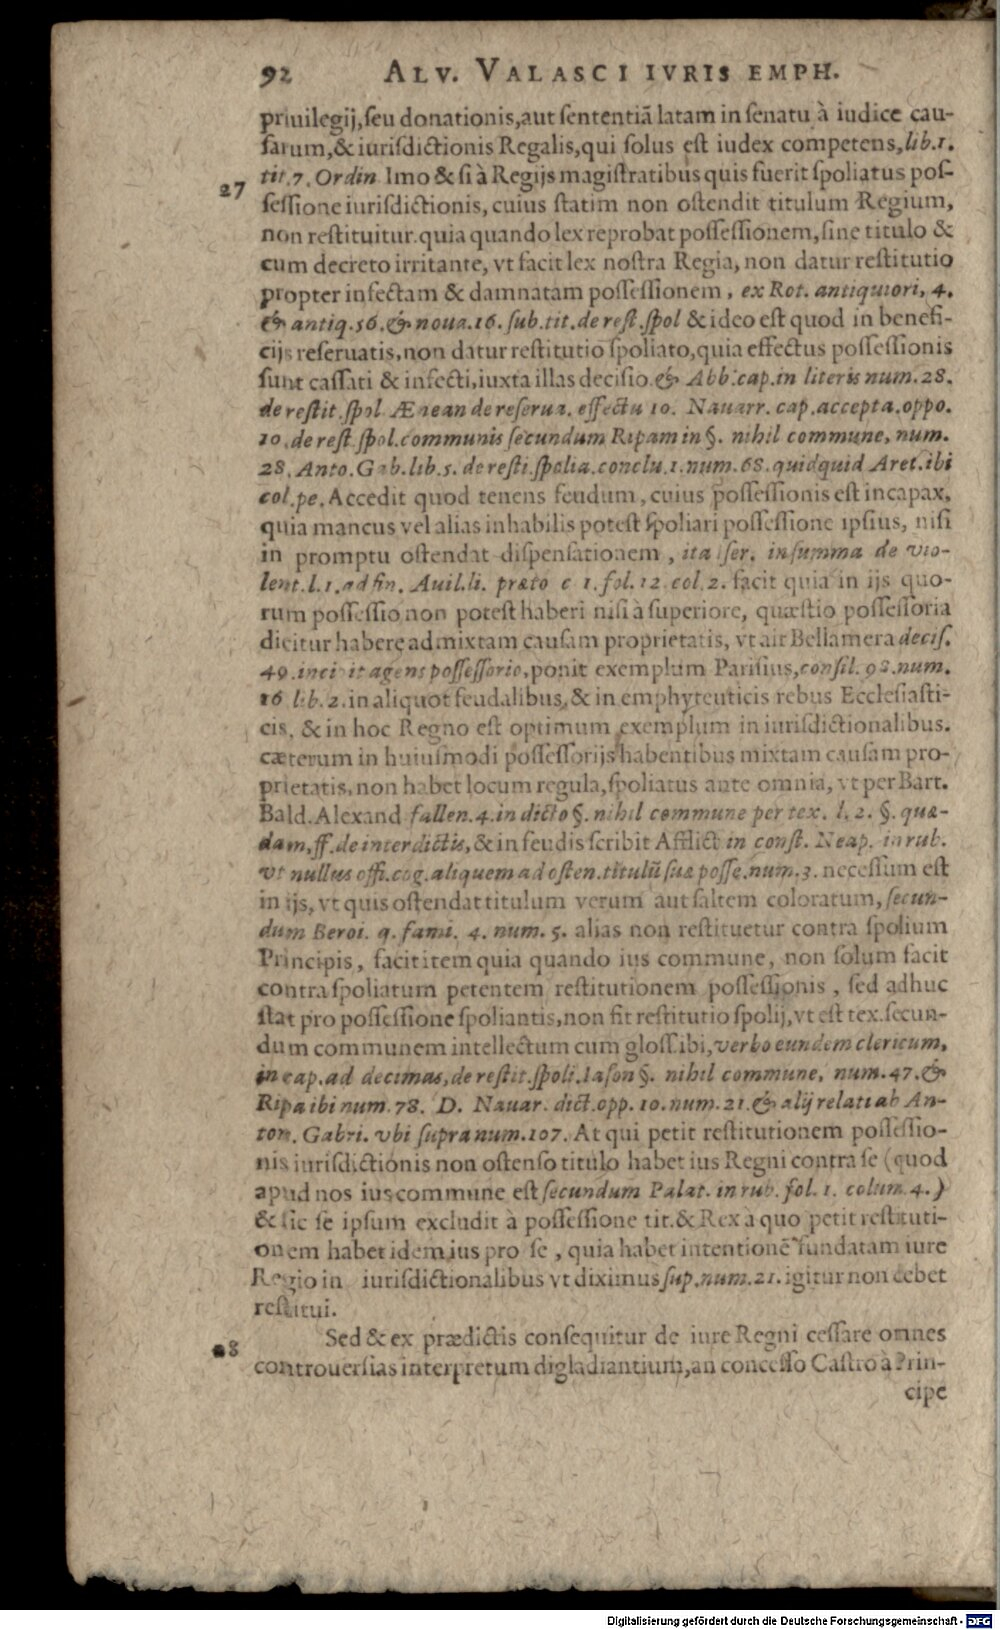 92 ALV. VALASCI IVRIS EMPH.
priuilegij, seu donationis, aut sententiã latam in senatu à iudice cau-
sarum, & iurisdictionis Regalis, qui solus est iudex competens, lib. 1.
27 tit. 7. Ordin Imo & si à Regijs magistratibus quis fuerit spoliatus pos-
sessione iurisdictionis, cuius statim non ostendit titulum Regium,
non restituitur. quia quando lex reprobat possessionem, sine titulo &
cum decreto irritante, vt facit lex nostra Regia, non datur restitutio
propter infectam & damnatam possessionem, ex Rot. antiquiori, 4.
& antiq. 56. & noua. 16. sub. tit. de rest. spol & ideo est quod in benefi-
cijs reseruatis, non datur restitutio spoliato, quia effectus possessionis
sunt cassati & infecti, iuxta illas decisio. & Abb. cap. in literis num. 28.
de restit. spol Ænean de reserua. effectu 10. Nauarr. cap. accepta. oppo.
10. de rest. spol. communis secundum Ripam in §. nihil commune, num.
28. Anto. Gab. lib. 5. de resti. spolia. conclu. 1. num. 68. quidquid Aret. ibi
col. pe. Accedit quod tenens feudum, cuius possessionis est incapax,
quia mancus vel alias inhabilis potest spoliari possessione ipsius, nisi
in promptu ostendat dispensationem, ita ser. in summa de vio-
lent. l. 1. ad fin. Auil. li. præto c 1. fol. 12 col. 2. facit quia in ijs quo-
rum possessio non potest haberi nisi à superiore, quæstio possessoria
dicitur habere admixtam causam proprietatis, vt ait Bellamera decis.
49. incipit agens possessorio, ponit exemplum Parisius, consil. 98. num.
16 lib. 2. in aliquot feudalibus, & in emphyteuticis rebus Ecclesiasti-
cis, & in hoc Regno est optimum exemplum in iurisdictionalibus.
cæterum in huiusmodi possessorijs habentibus mixtam causam pro-
prietatis, non habet locum regula, spoliatus ante omnia, vt per Bart.
Bald. Alexand fallen. 4. in dicto §. nihil commune per tex. l. 2. §. quæ-
dam, ff. de interdictis, & in feudis scribit Afflict in const. Neap. in rub.
vt nullus offi. cog. aliquem ad osten. titulũ suæ posse. num. 3. necessum est
in ijs, vt quis ostendat titulum verum aut saltem coloratum, secun-
dum Beroi. q. fami. 4. num. 5. alias non restituetur contra spolium
Principis, facit item quia quando ius commune, non solum facit
contra spoliatum petentem restitutionem possessionis, sed adhuc
stat pro possessione spoliantis, non fit restitutio spolij, vt est tex. secun-
dum communem intellectum cum gloss ibi, verbo eundem clericum,
in cap. ad decimas, de restit. spoli. Iason §. nihil commune, num. 47. &
Ripa ibi num. 78. D. Nauar. dict. opp. 10. num. 21. & alij relati ab An-
ton. Gabri. vbi supra num. 107. At qui petit restitutionem possessio-
nis iurisdictionis non ostenso titulo habet ius Regni contra se (quod
apud nos ius commune est secundum Palat. in rub. fol. 1. colum. 4.)
& sic se ipsum excludit à possessione tit. & Rex à quo petit restituti-
onem habet idem ius pro se, quia habet intentionẽ fundatam iure
Regio in iurisdictionalibus vt diximus sup. num. 21. igitur non debet
restitui.
28 Sed & ex prædictis consequitur de iure Regni cessare omnes
controuersias interpretum digladiantium, an concesso Castro à Prin-
cipe
Digitalisierung gefördert durch die Deutsche Forschungsgemeinschaft - DFG